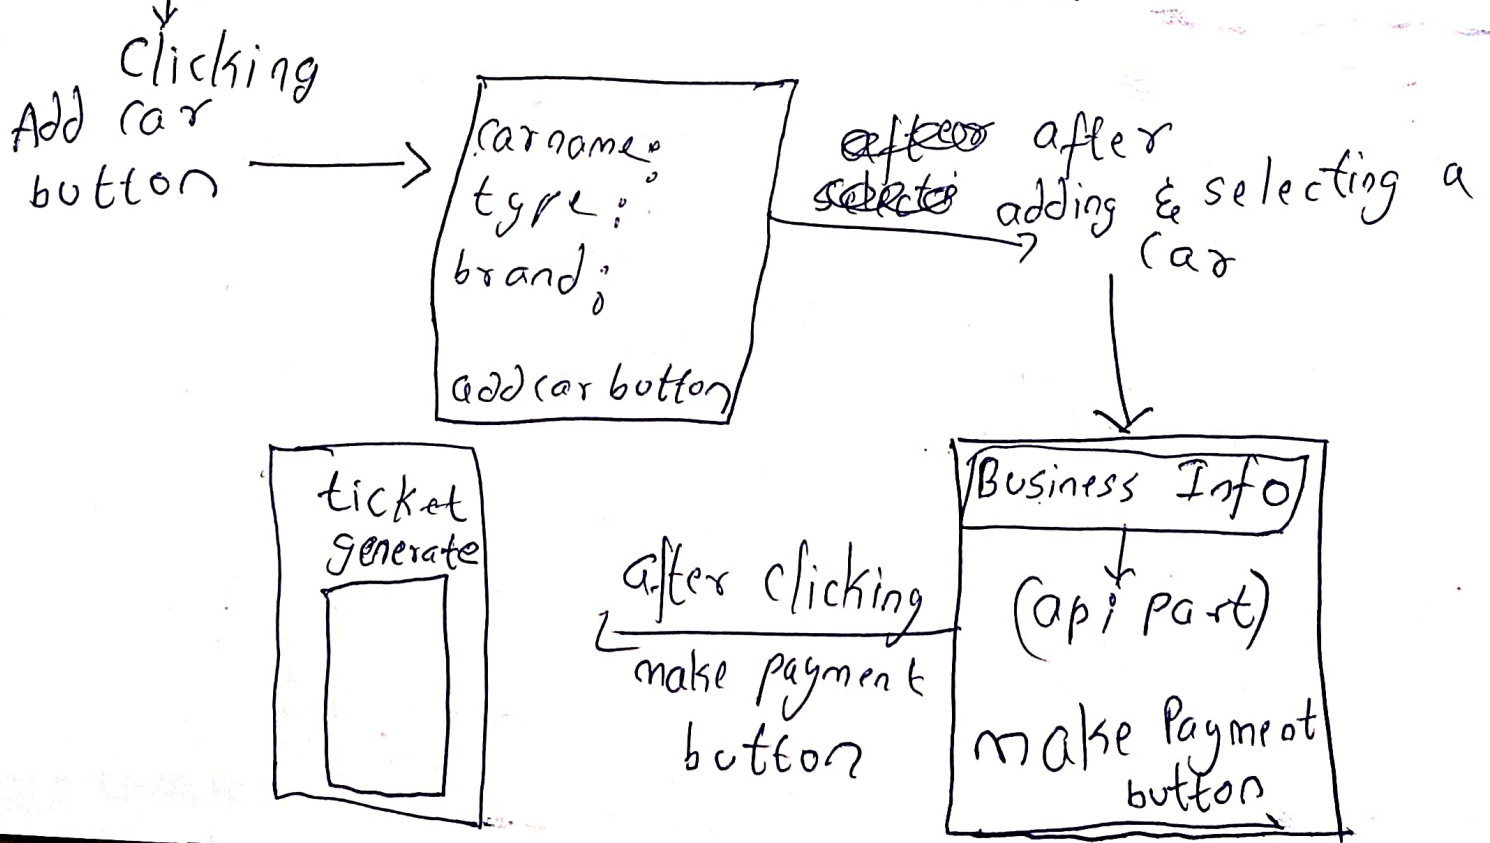 Clicking
Add car
button
car name:
type:
brand:
add car button
after
adding & selecting a
car
Business Info
(api part)
make Payment
button
after clicking
make payment
button
ticket
generate